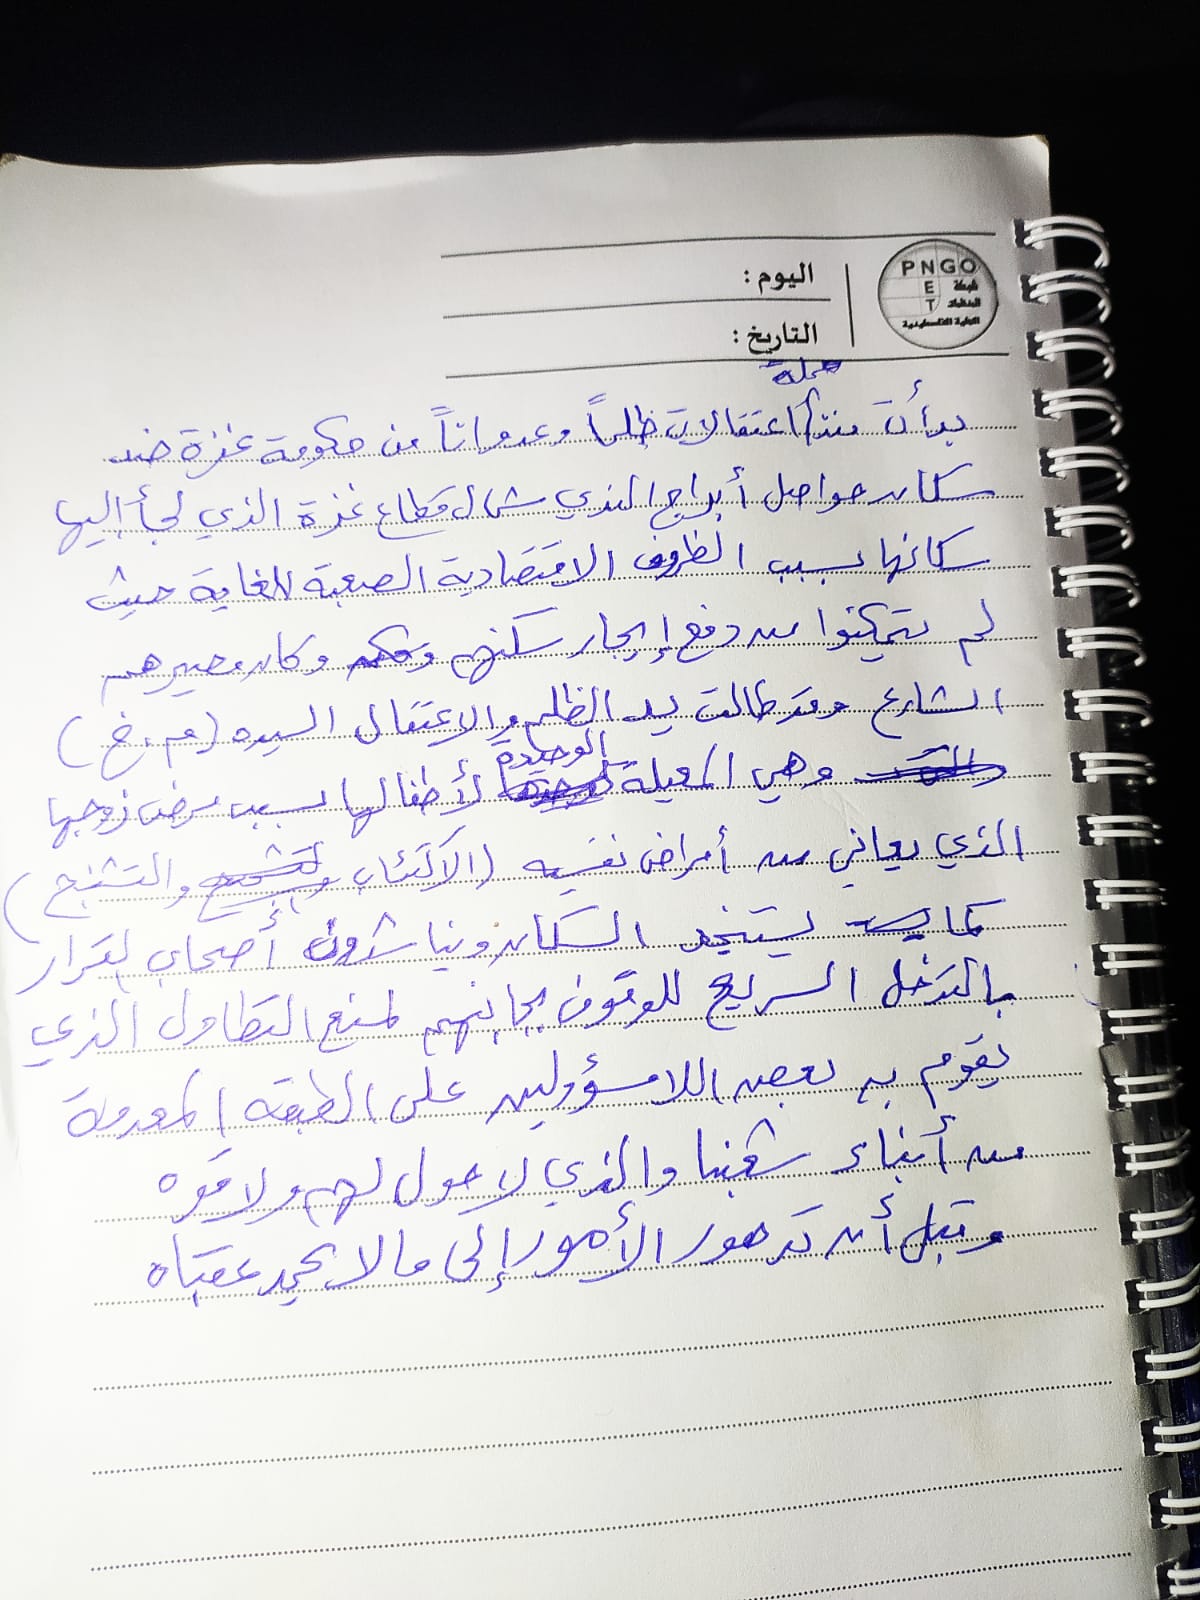 PNGO
NET
شبكة
المنظمات
الأهلية الفلسطينية
اليوم :
التاريخ :
حملة
بدأت منذ اعتقالات ظلماً وعدواناً من حكومة غزة ضد
سكان حواصل أبراج الندي شمال قطاع غزة الذي لجأ إليها
سكانها بسبب الظروف الاقتصادية الصعبة للغاية حيث
لم يتمكنوا من دفع إيجار سكنهم وكان مصيرهم
الشارع وقد طالت يد الظلم والاعتقال السيده (م . خ)
وهي المعيلة الوحيدة لأطفالها بسبب مرض زوجها
الذي يعاني من أمراض نفسيه (الاكتئاب والتشنج)
كما يستنجد السكان ويناشدون أصحاب القرار
بالتدخل السريع للوقوف بجانبهم لمنع التطاول الذي
يقوم به بعض اللامسؤولين على الطبقة المعدمة
من أبناء شعبنا والذي لا حول لهم ولا قوه
وقبل أن تدهور الأمور إلى ما لا يحمد عقباه